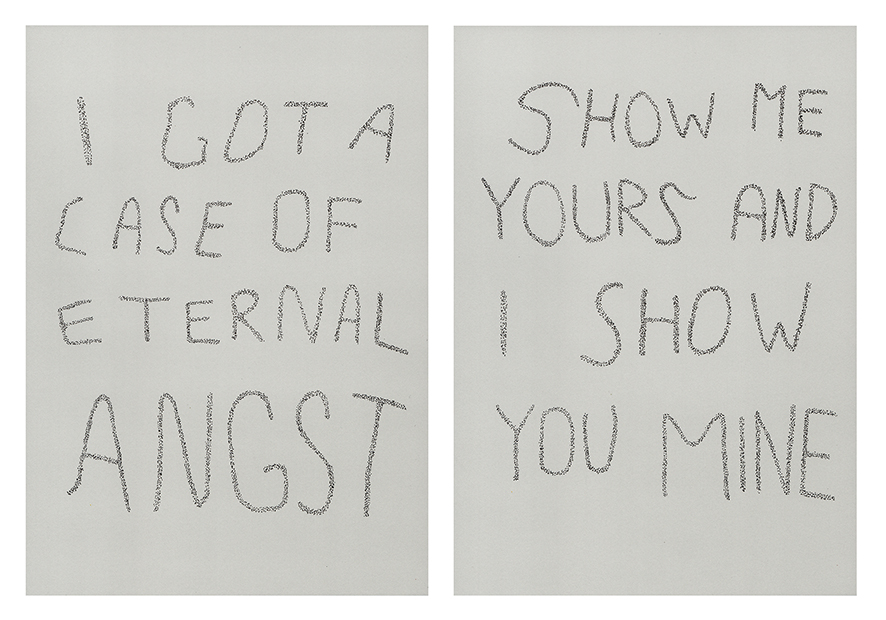 I GOT A
CASE OF
ETERNAL
ANGST
SHOW ME
YOURS AND
I SHOW
YOU MINE